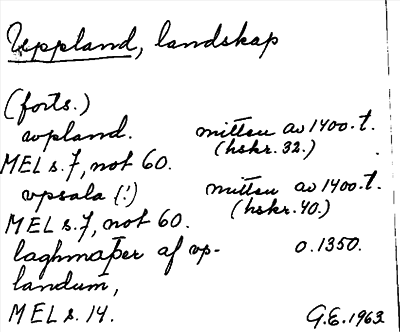 Uppland, landskap
(forts.)
upland. mitten av 1400-t.
(hskr. 32.)
MEL s. 7, not 60.
upsala (!) mitten av 1400-t.
(hskr. 40.)
MEL s. 7, not 60.
laghmaþer af up- o. 1350.
landum,
MEL s. 14. G.E. 1963